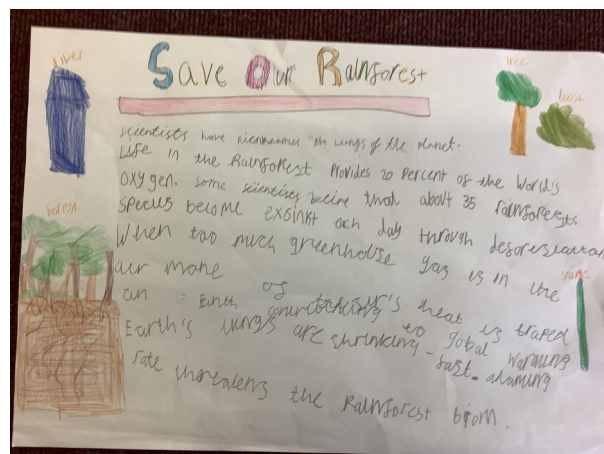 river
Save Our Rainforest
tree
scientises have nicknames "the lungs of the planet.
Life in the Rainforest Provides 20 percent of the World's
oxygen. some scientises belive that about 35 rainforests
species become exsinkt each day through desorestation
When too much greenhouse gas is in the
air more of Earth's heat is traped
an contributing to global warming
Earth's lungs are shrinking - fast - alarming
rate threatens the Rainforest biom.
forest